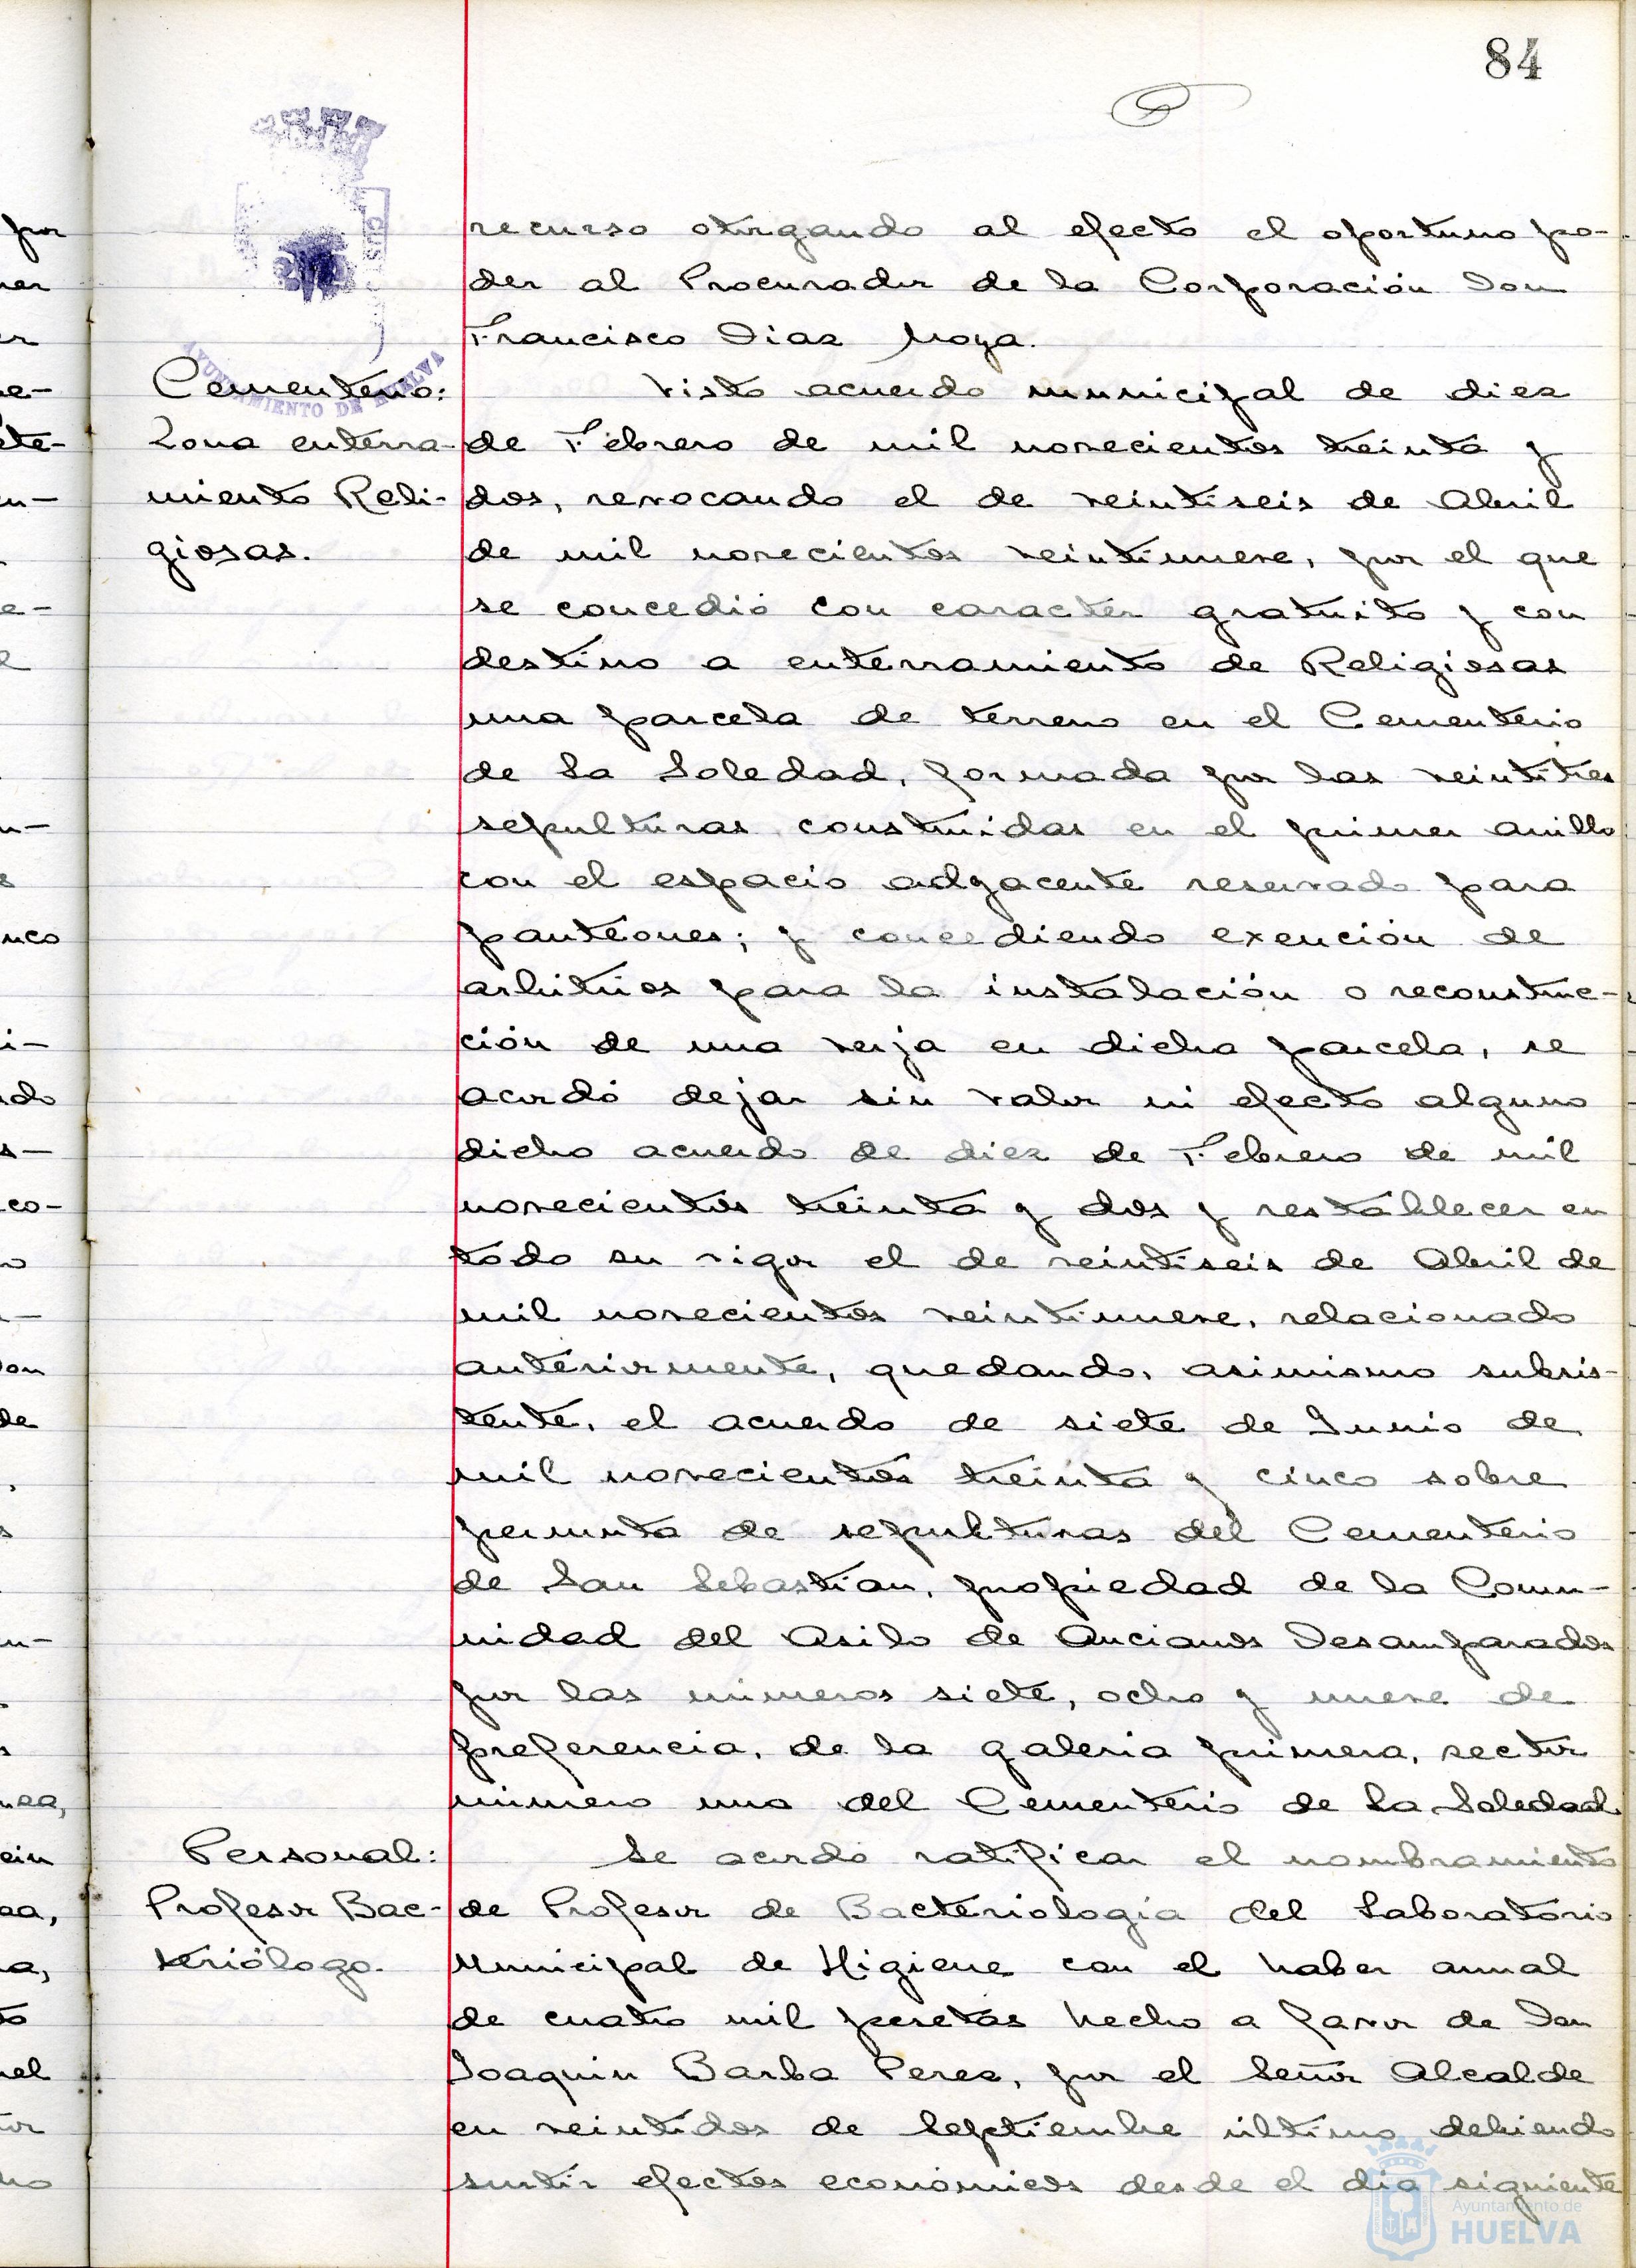 84
recurso otorgando al efecto el oportuno po-
der al Procurador de la Corporación Don
Francisco Diaz Moya.
Cementerio:
Zona enterra-
miento Reli-
giosas.
Visto acuerdo municipal de diez
de Febrero de mil novecientos treinta y
dos, revocando el de veintiseis de Abril
de mil novecientos veintinueve, por el que
se concedió con caracter gratuito y con
destino a enterramiento de Religiosas
una parcela de terreno en el Cementerio
de La Soledad, formada por las veintitres
sepulturas construidas en el primer anillo
con el espacio adyacente reservado para
panteones; y concediendo exención de
arbitrios para la instalación o reconstruc-
ción de una verja en dicha parcela, se
acordó dejar sin valor ni efecto alguno
dicho acuerdo de diez de Febrero de mil
novecientos treinta y dos y restablecer en
todo su vigor el de veintiseis de Abril de
mil novecientos veintinueve, relacionado
anteriormente, quedando, asimismo subsis-
tente, el acuerdo de siete de Junio de
mil novecientos treinta y cinco sobre
permuta de sepulturas del Cementerio
de San Sebastian, propiedad de la Comu-
nidad del Asilo de Ancianos Desamparados
por las números siete, ocho y nueve de
preferencia, de la galeria primera, sector
número uno del Cementerio de La Soledad.
Personal:
Profesor Bac-
teriólogo.
Se acordó ratificar el nombramiento
de Profesor de Bacteriologia del Laboratorio
Municipal de Higiene con el haber anual
de cuatro mil pesetas hecho a favor de Don
Joaquin Barba Perez, por el Señor Alcalde
en veintidos de Septiembre último debiendo
surtir efectos económicos desde el dia siguiente
AYUNTAMIENTO DE HUELVA
Ayuntamiento de
HUELVA